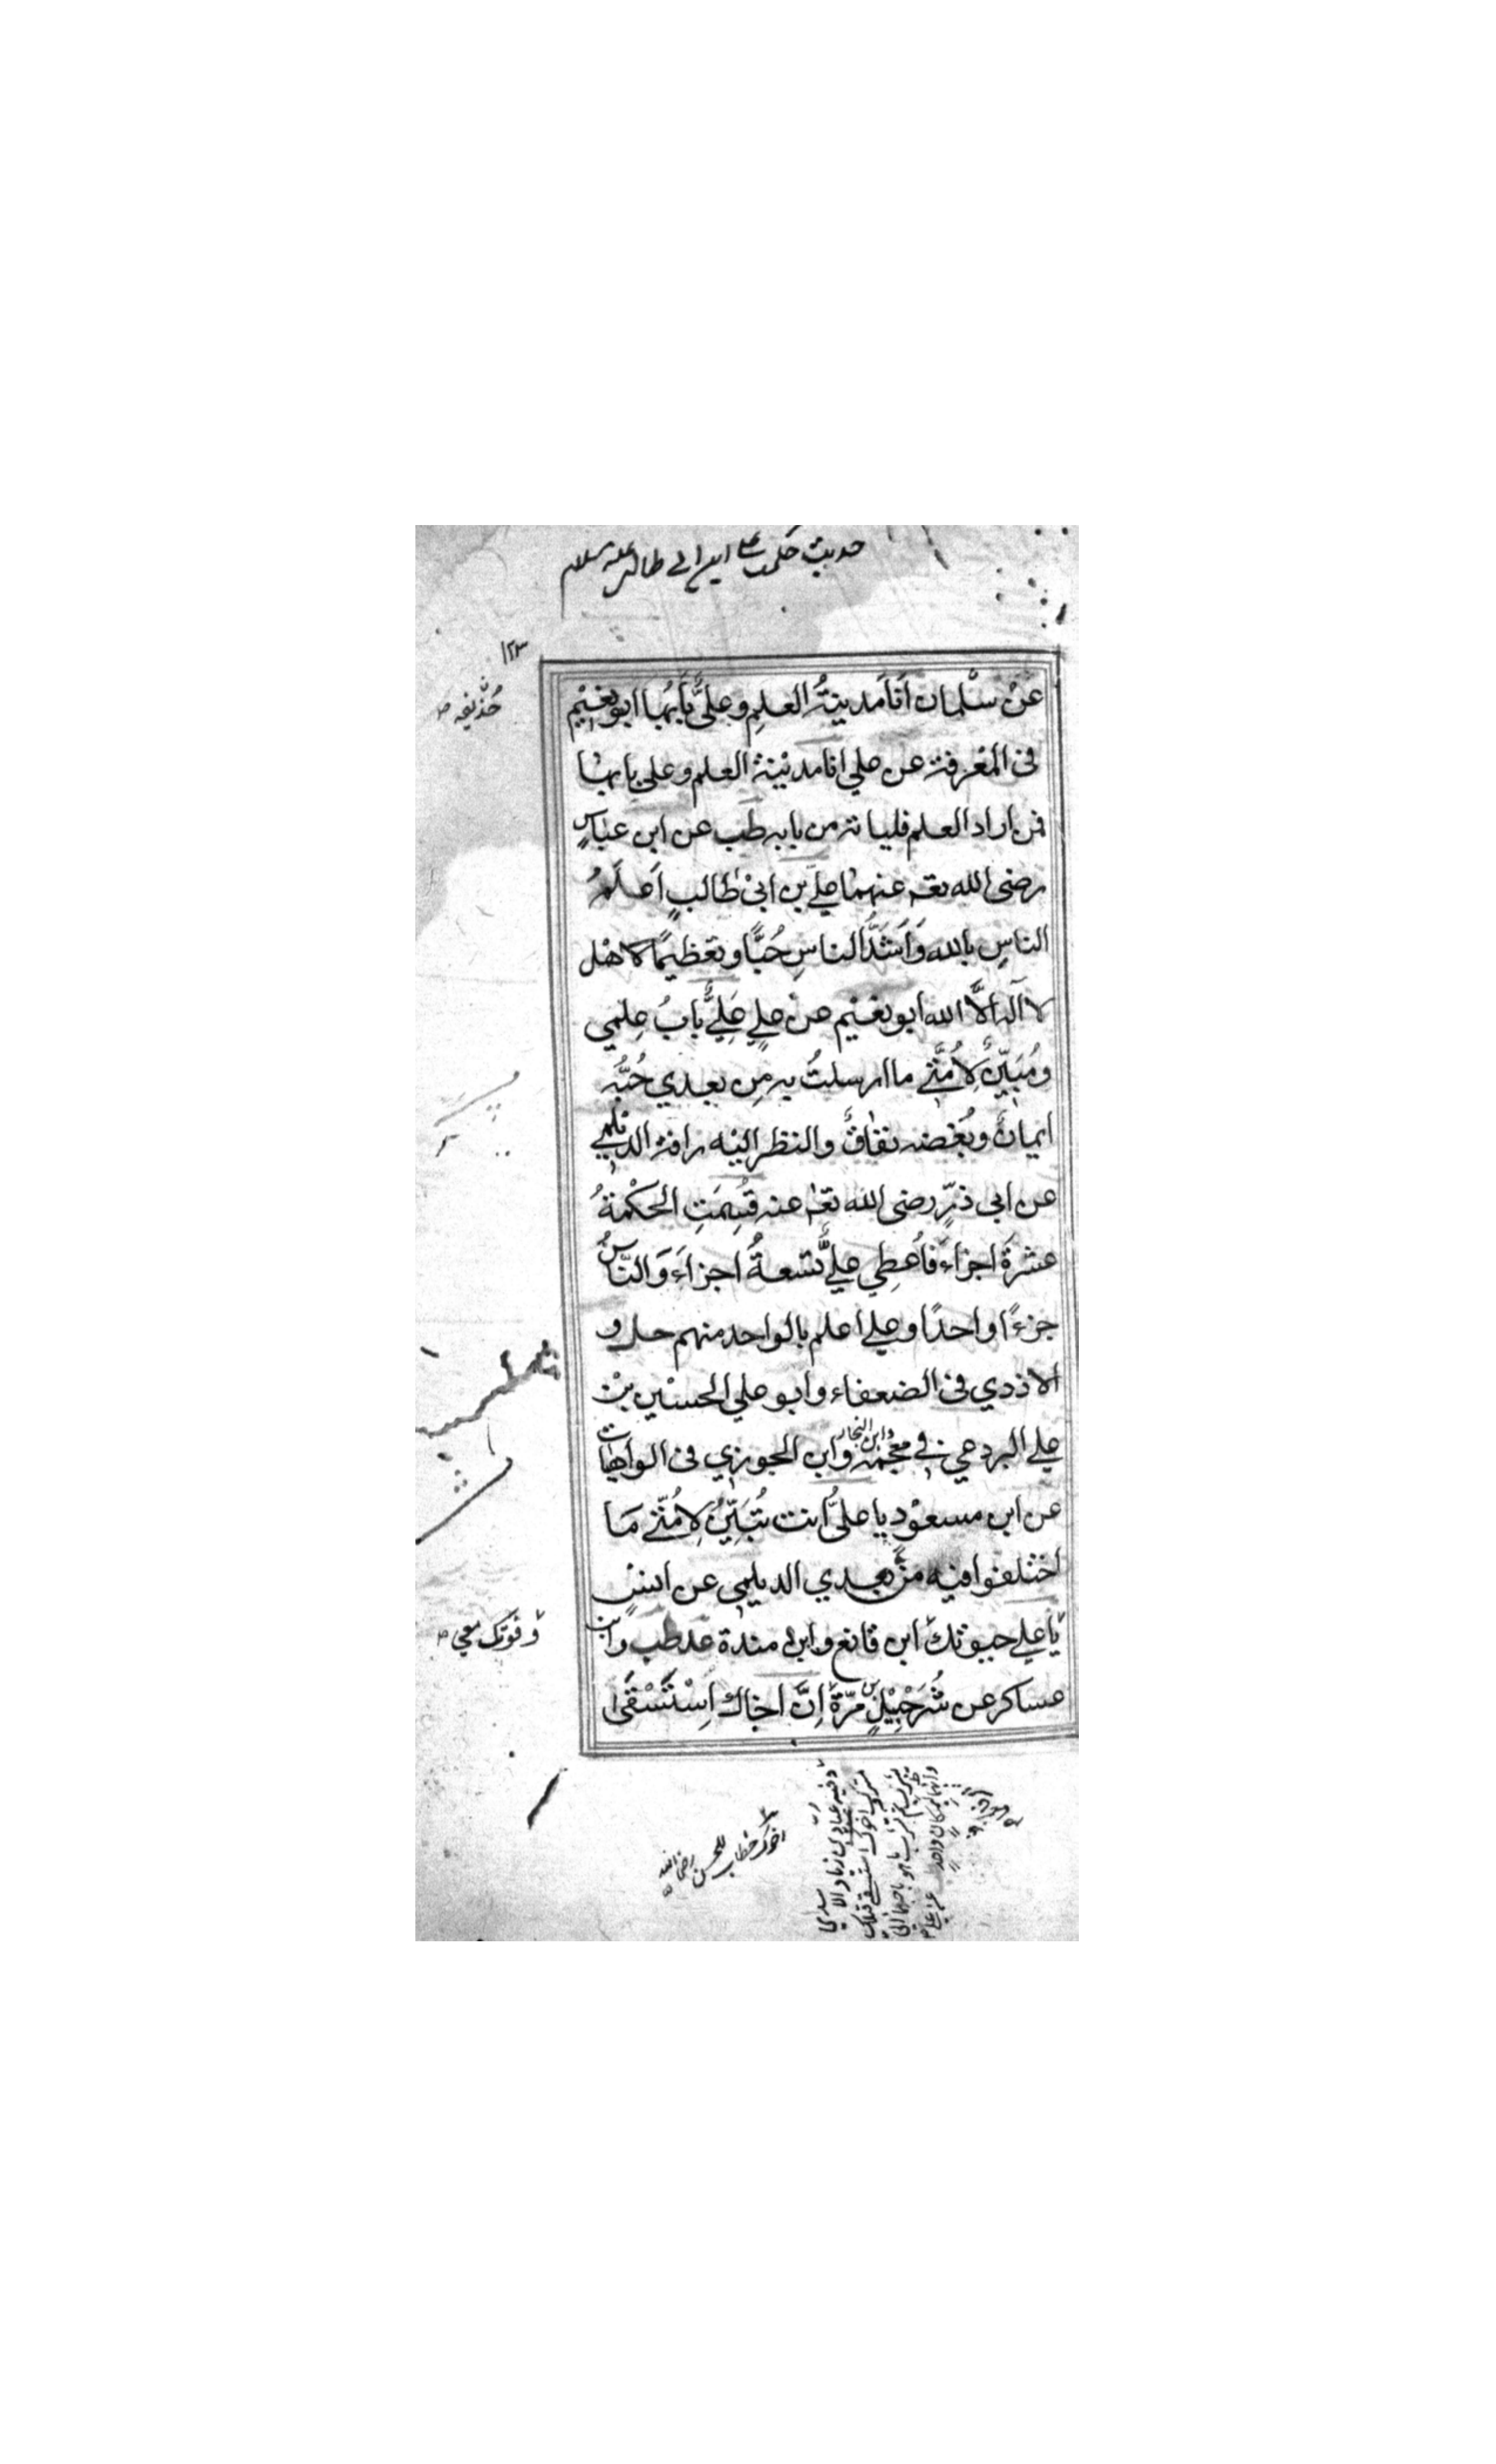 حديث حكمت علي ابن ابي طالب عليه سلام
١٢٣
حُذَيفه ص
عَنْ سَلْمان اَنَا مَدينةُ العلمِ وعليٌّ بَابُهَا ابو نعيم
فى المعْرفة عن علي انا مدينة العلم وعلى بابها
فمن اراد العلم فلياته من بابه طب عن ابن عباسٍ
رضى الله تعـ عنهما علي بن ابى طالبٍ اَعلَمُ
الناسِ بالله وَاَشَدُّ الناسِ حُبًّا وتعظيمًا لاهل
لا آله الَّا الله ابو نعيم عن عليٍ عَلِيٌّ بابُ عِلمي
ومُبَيِّنٌ لِاُمَّتي ما ارسلتُ به مِن بعدي حُبُّه
ايمانٌ وبُغضه نفاقٌ والنظر اليه رافة الديلمي
عن ابى ذرٍّ رضى الله تعـ عنه قُسِمَتِ الحكْمةُ
عشرةَ اجزاء فاُعطِي عليٌّ تسعةُ اجزاء وَالنّاسُ
جزءًا واحدًا وعلي اعلم بالواحد منهم حل و
الازدي فى الضعفاء وابو علي الحسين بن
علي البردعي في معجمه وابن النجار وابن الجوزي فى الواهيات
عن ابن مسعود يا عليُّ انت تُبَيِّنُ لِاُمَّتي مَا
اختلفوا فيه من بعدي الديلمي عن انس
يا علي حبوتك ابن قانع وابن مندة عد طب وابن
وفوتك معي ص
عساكر عن شُرَحْبِيْلِ بن مرّة اِنَّ اخاك اِسْتَسْقَى
اخوك خطاب للحسن رضى الله
وفيه عبادة بن زياد الاسدي